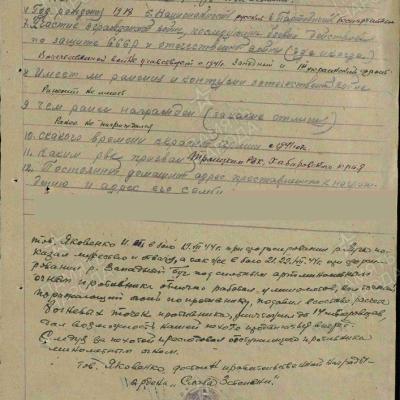 4. Год рождения 1918 5. Национальность русский 6. Партийность
7. Участие в гражданской войне, последующих боевых действиях
по защите СССР и отечественной войне (где и когда)
В отечественной войне участвует с 1941г. Западный и 1й украинский фронт
8. Имеет ли ранения и контузии в отечественной войне
Ранений не имеет
9. Чем ранее награжден (за какие отличия)
Ранее не награжден
10. С какого времени в красной армии с 1941 года
11. Каким РВК призван РВК, Хабаровского края
12. Постоянный домашний адрес представляемого к награж-
дению и адрес его семьи
тов. Яковенко И. в бою 19.VII.44г. при форсировании р.
казал мужество и отвагу, а так же в бою 21.22.VII.44г. при форси-
рования р. Западный Буг под сильным артминометным
огнем противника отлично работал у миномета, вел точный
поражающий огонь по противнику, подавил
огневых точек противника, уничтожил до 14 гитлеровцев,
дал возможность нашей пехоте продвигаться вперед.
Следуя за пехотой преследовал отступающего противника
минометным огнем.
тов. Яковенко, достоин правительственной награды-
ордена "Слава 3 степени".